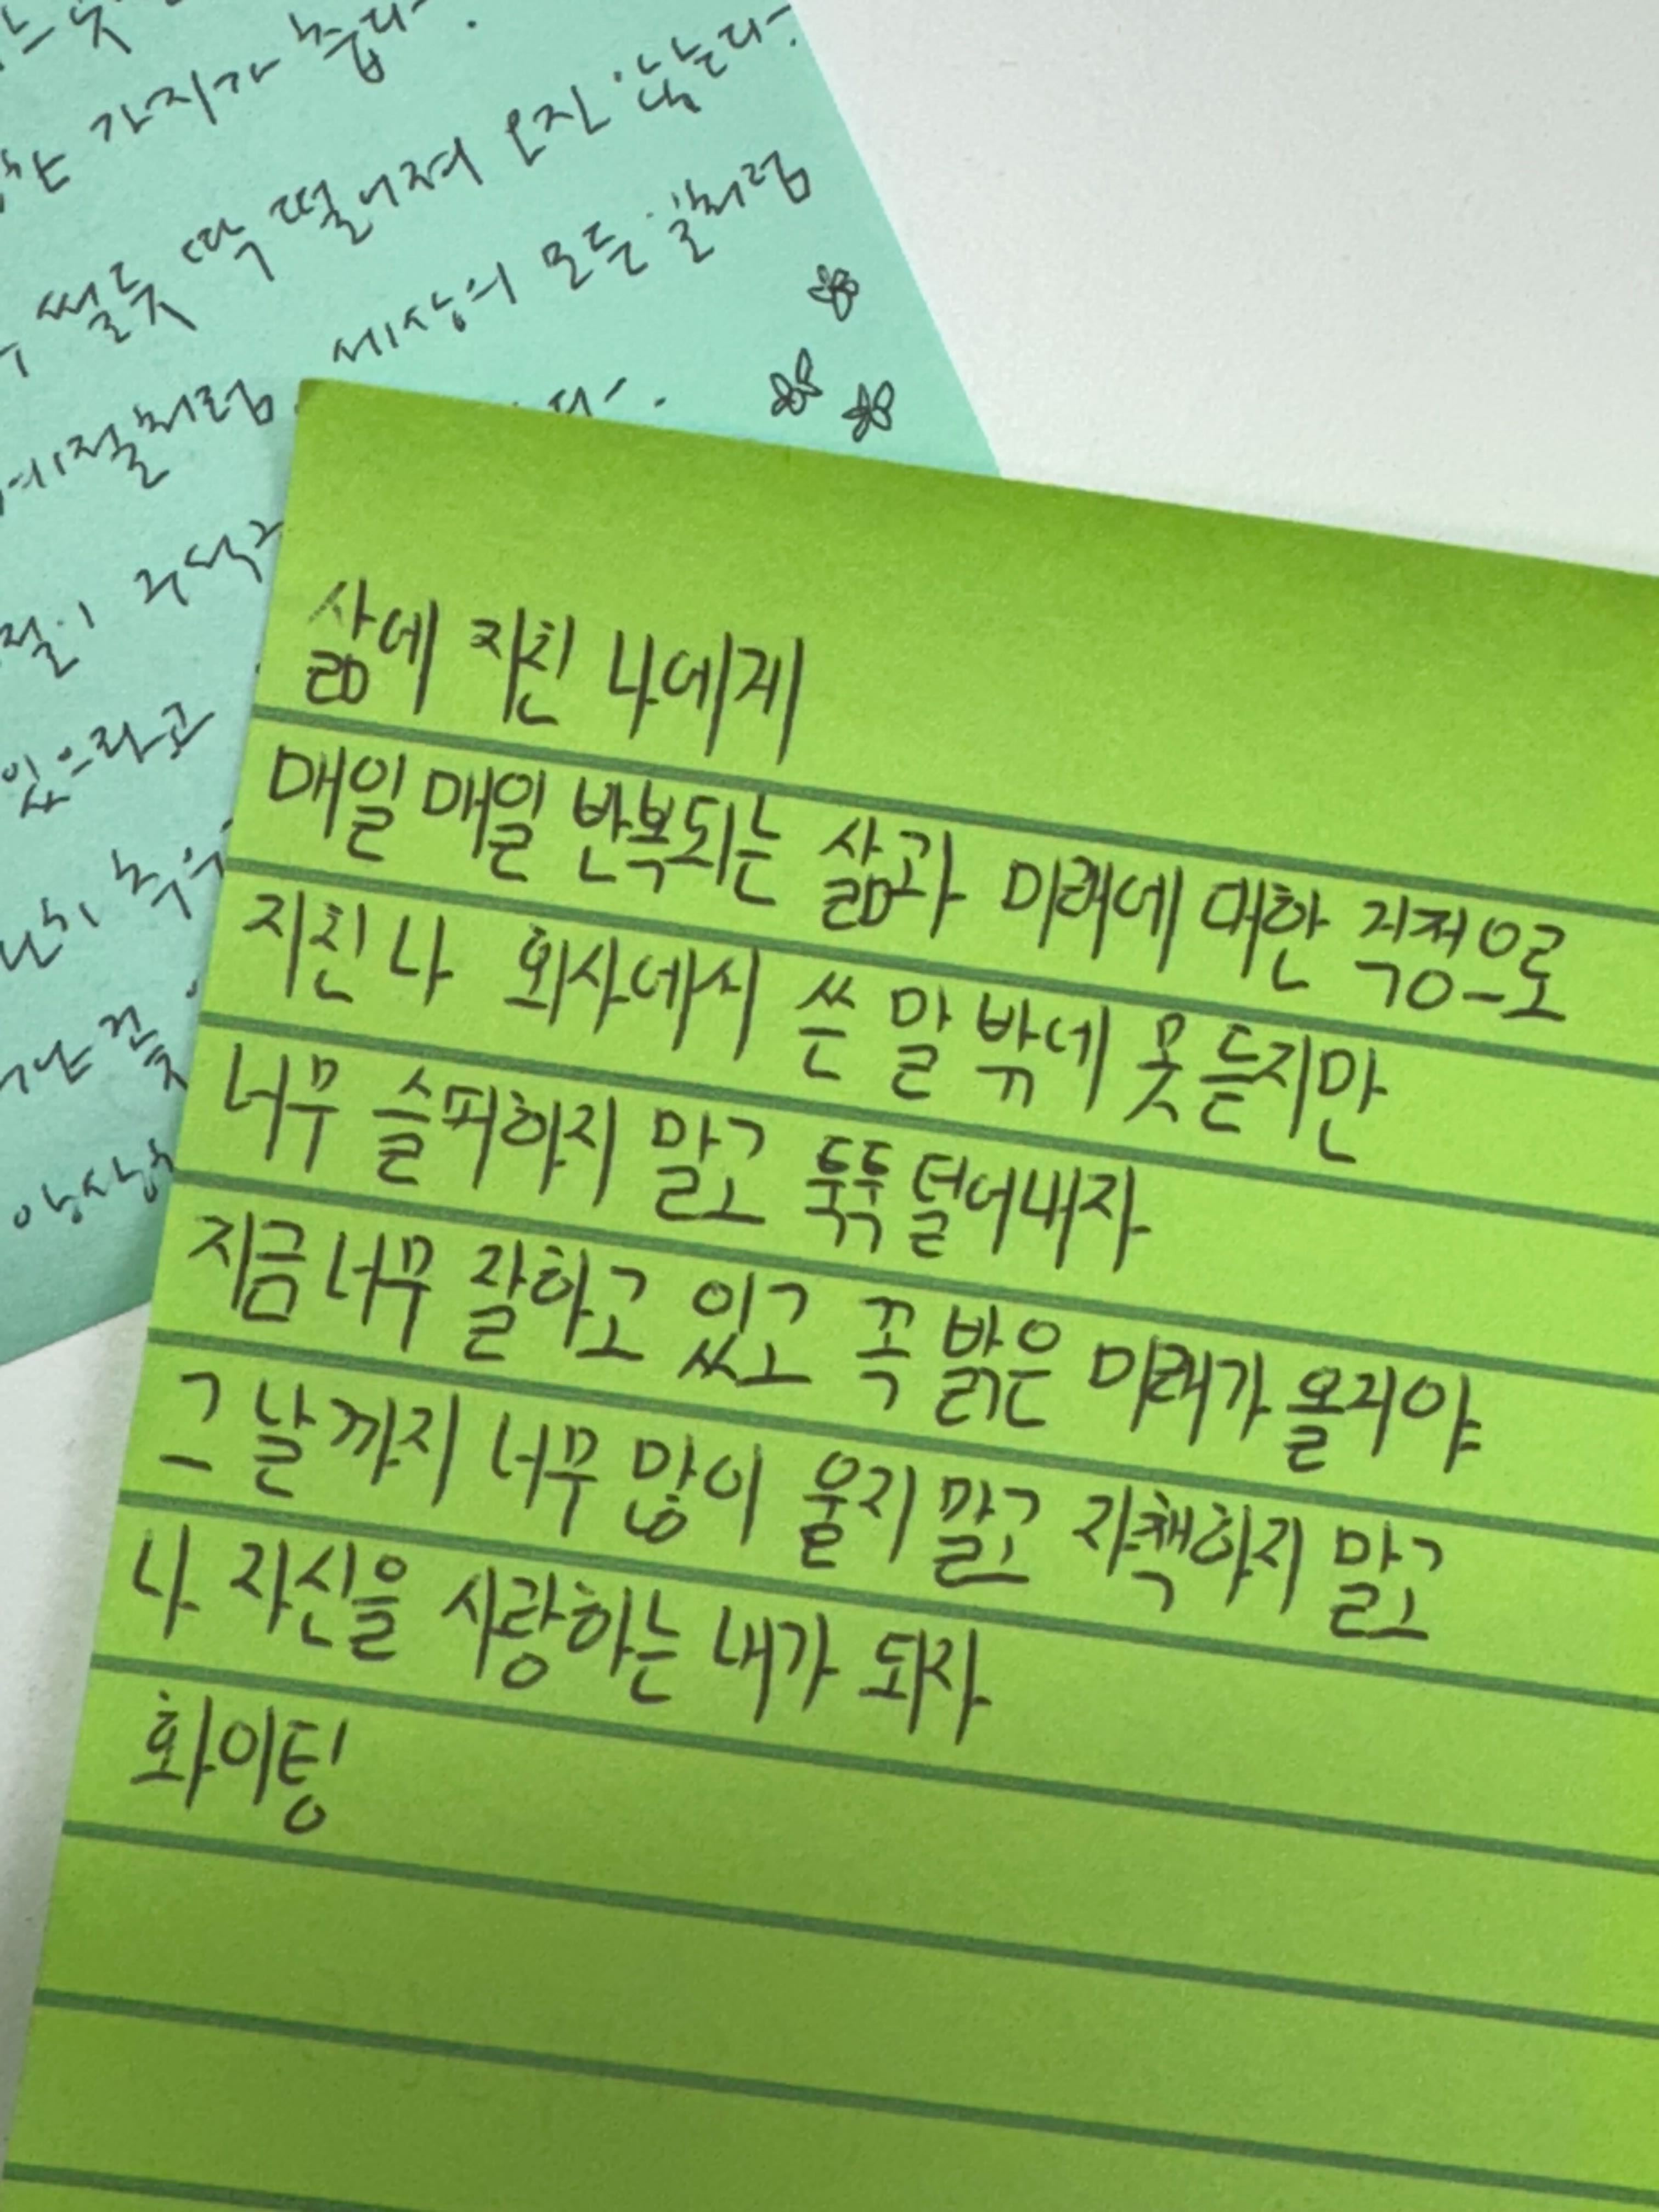 가지가 눕다.
썰둑 딱 떨어져 오진 않는다.
세상의 모든 일처럼
있으라고
삶에 지친 나에게
매일 매일 반복되는 삶과 미래에 대한 걱정으로
지친 나 회사에서 쓴 말 밖에 못 듣지만
너무 슬퍼하지 말고 뚝뚝 털어내자
지금 너무 잘하고 있고 꼭 밝은 미래가 올거야
그 날까지 너무 많이 울지 말고 자책하지 말고
나 자신을 사랑하는 내가 되자
화이팅